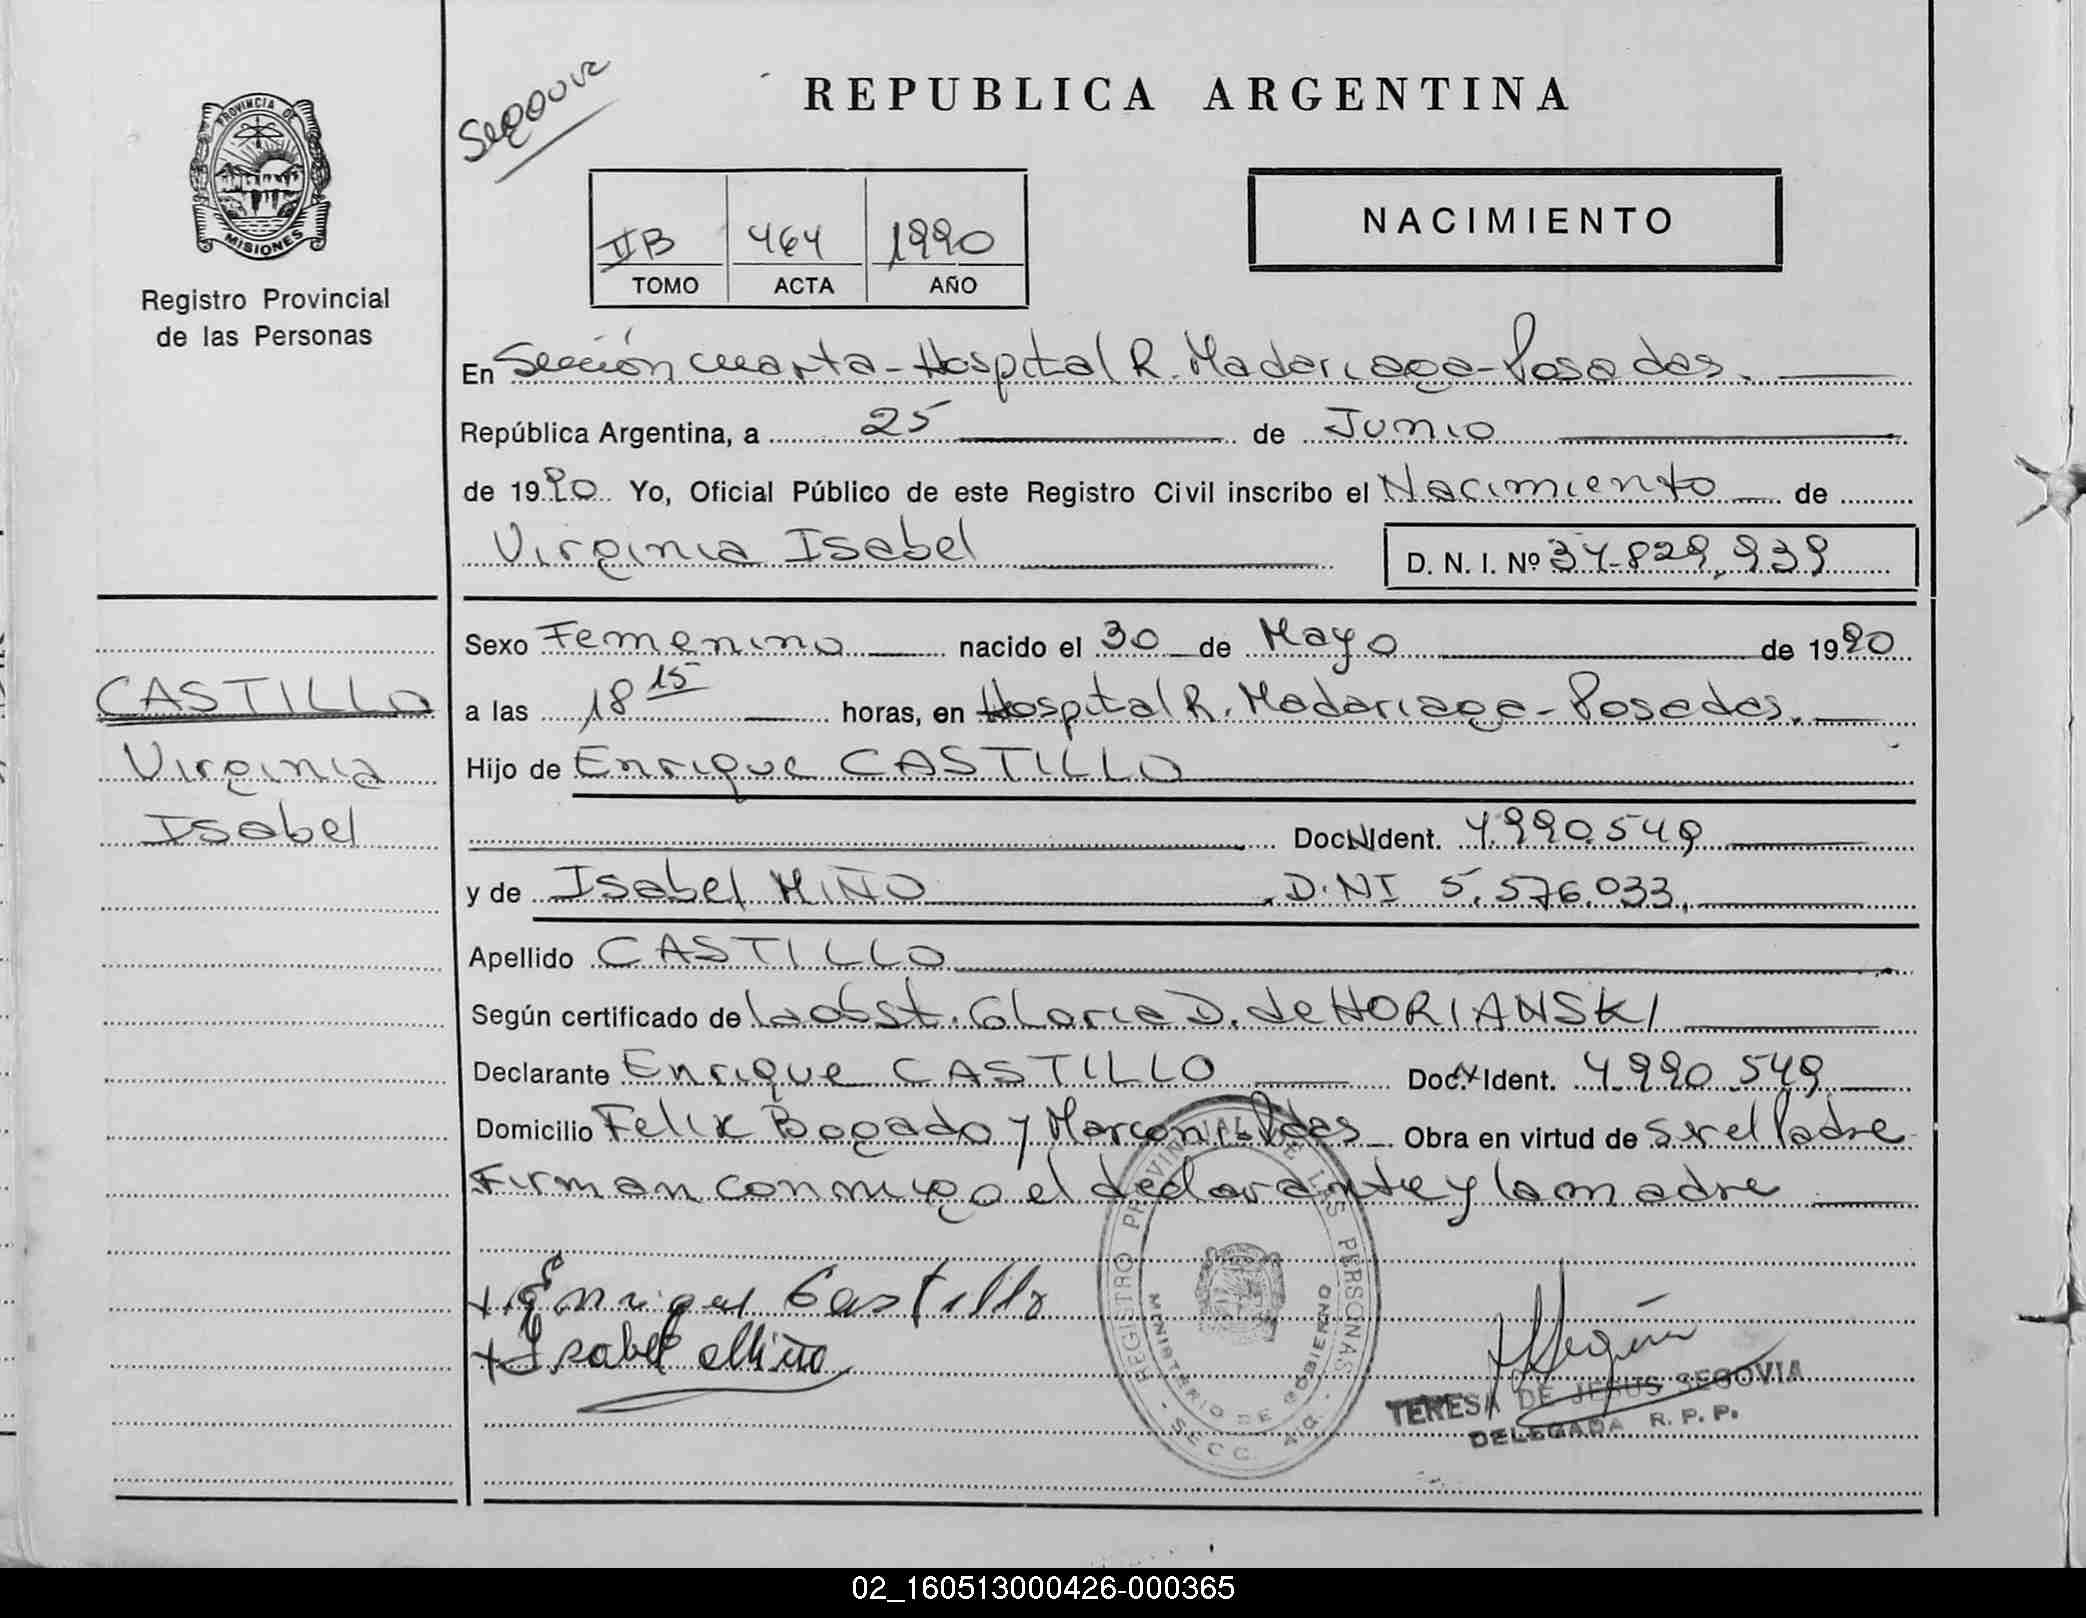 Segovia
REPUBLICA ARGENTINA
PROVINCIA DE
MISIONES
Registro Provincial
de las Personas
II B 464 1990
TOMO ACTA AÑO
NACIMIENTO
En Sección cuarta - Hospital R. Madariaga - Posadas.
República Argentina, a 25 de Junio
de 1990 Yo, Oficial Público de este Registro Civil inscribo el Nacimiento de
Virginia Isabel D. N. I. Nº 34.829.939
Sexo Femenino nacido el 30 de Mayo de 1990
CASTILLO
Virginia
Isabel
a las 18 15 horas, en Hospital R. Madariaga - Posadas.
Hijo de Enrique CASTILLO
Doc. Ident. 4.990.549
y de Isabel MIÑO . D.NI 5.576.033.
Apellido CASTILLO
Según certificado de la obst. Gloria D. de HORIANSKI
Declarante Enrique CASTILLO Doc. Ident. 4.990.549
Domicilio Felix Bogado y Marconi - Pdas Obra en virtud de ser el Padre
Firman conmigo el declarante y la madre
+ Enrique Castillo
+ Isabel Miño
REGISTRO PROVINCIAL DE LAS PERSONAS
MINISTERIO DE GOBIERNO
- SECC. 4ta. -
TERESA DE JESUS SEGOVIA
DELEGADA R. P. P.
02_160513000426-000365